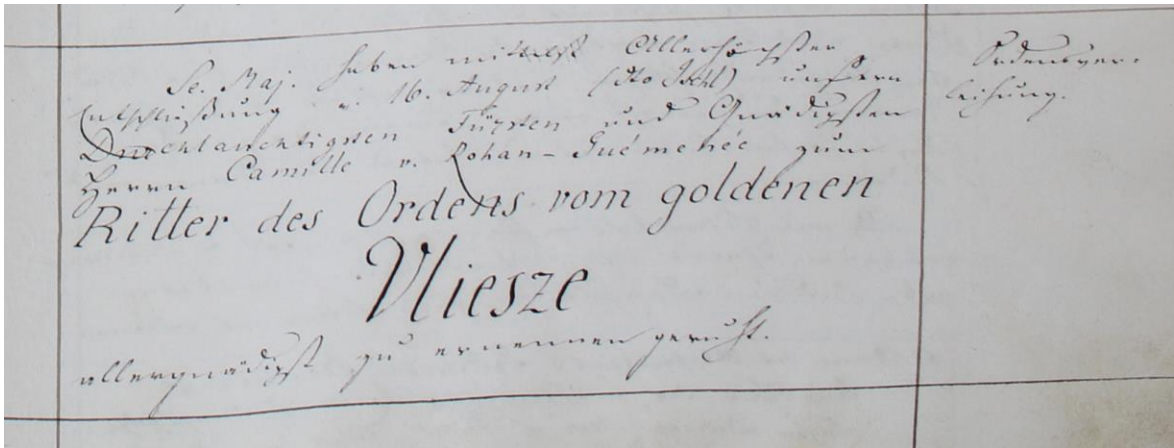 Se. Maj. haben mittelst Allerhöchster
Entschließung v. 16. August (dto Ischl) unsern
Durchlauchtigsten Fürsten und Gnädigsten
Herrn Camille v. Rohan-Guémenée zum
Ritter des Ordens vom goldenen
Vliesze
allergnädigst zu ernennen geruht.
Ordensver-
leihung.